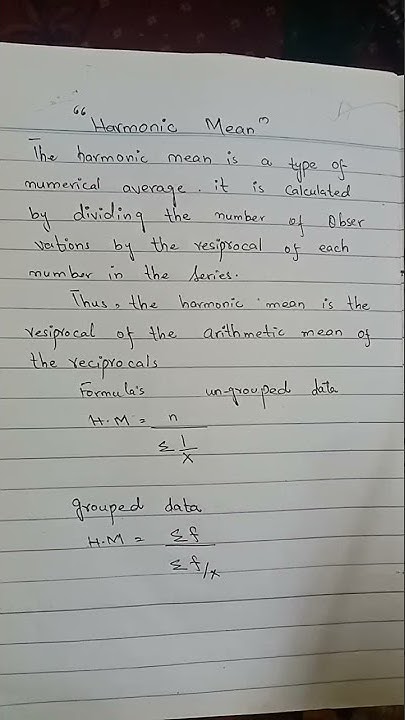 “Harmonic Mean”
The harmonic mean is a type of
numerical average. it is Calculated
by dividing the number of Obser
vations by the resiprocal of each
number in the series.
Thus, the harmonic mean is the
resiprocal of the arithmetic mean of
the reciprocals
Formula's un-grouped data
H.M = n
Σ 1/x
grouped data
H.M = Σf
Σ f/x